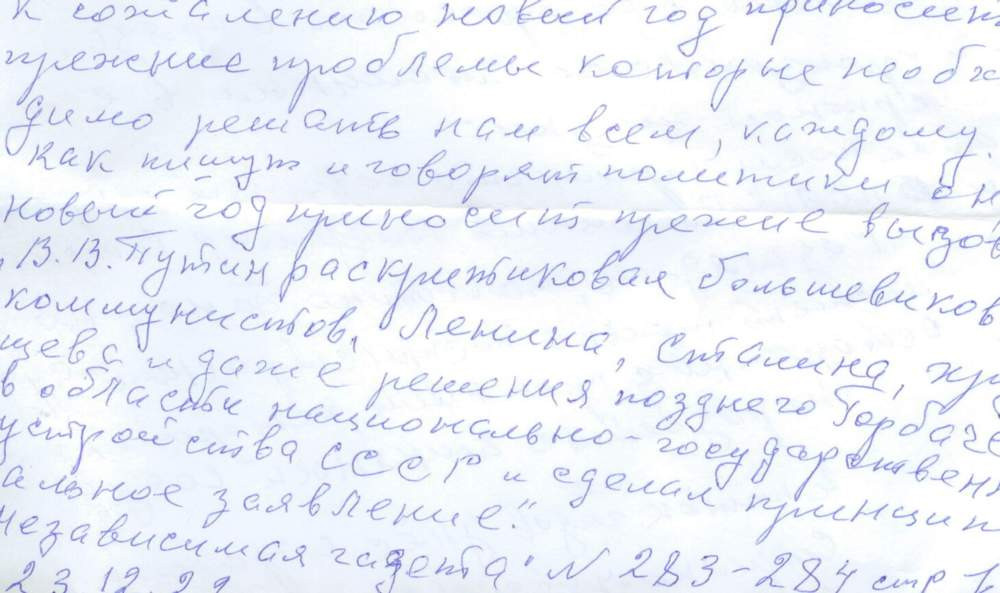 к сожалению новый год приносит
прежние проблемы которые необх
димо решать нам всем, каждому.
Как пишут и говорят политики он
новый год приносит прежние вызов
В.В. Путин раскритиковал большевиков
коммунистов, Ленина, Сталина, Хру
щева и даже решения позднего Горбаче
в области национально-государственн
устройства СССР и сделал принцип
альное заявление".
Независимая газета" N 283-284 стр 1
23.12.22